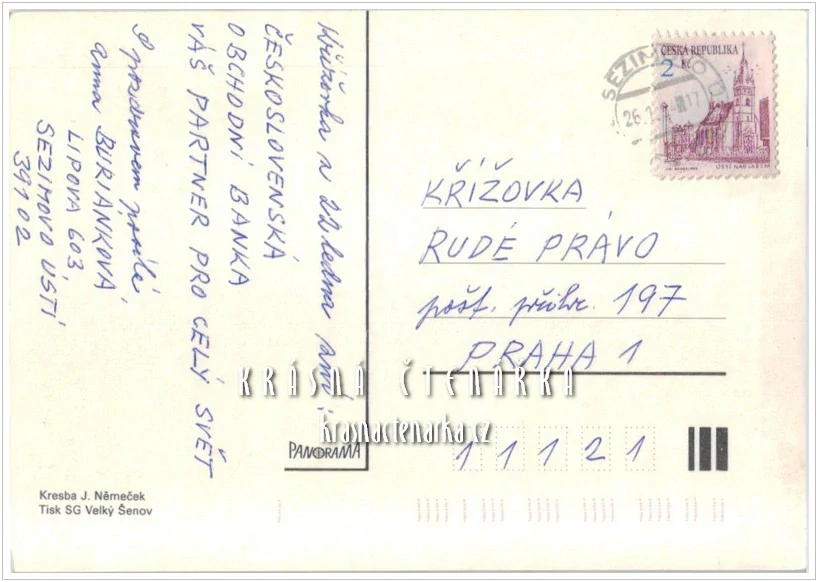 Křížovka z 22 ledna zní:
ČESKOSLOVENSKÁ
OBCHODNÍ BANKA
VÁŠ PARTNER PRO CELÝ SVĚT
S pozdravem posílá
anna BURIANKOVÁ
LIPOVA 603
SEZIMOVO ÚSTÍ
39102
ČESKÁ REPUBLIKA
2 Kč
ÚSTÍ NAD LABEM
SEZIMOVO
KŘÍŽOVKA
RUDÉ PRÁVO
pošt. přihr. 197
PRAHA 1
KRÁSNÁ ČTENÁŘKA
krasnactenarka.cz
PANORAMA
11121
Kresba J. Němeček
Tisk SG Velký Šenov